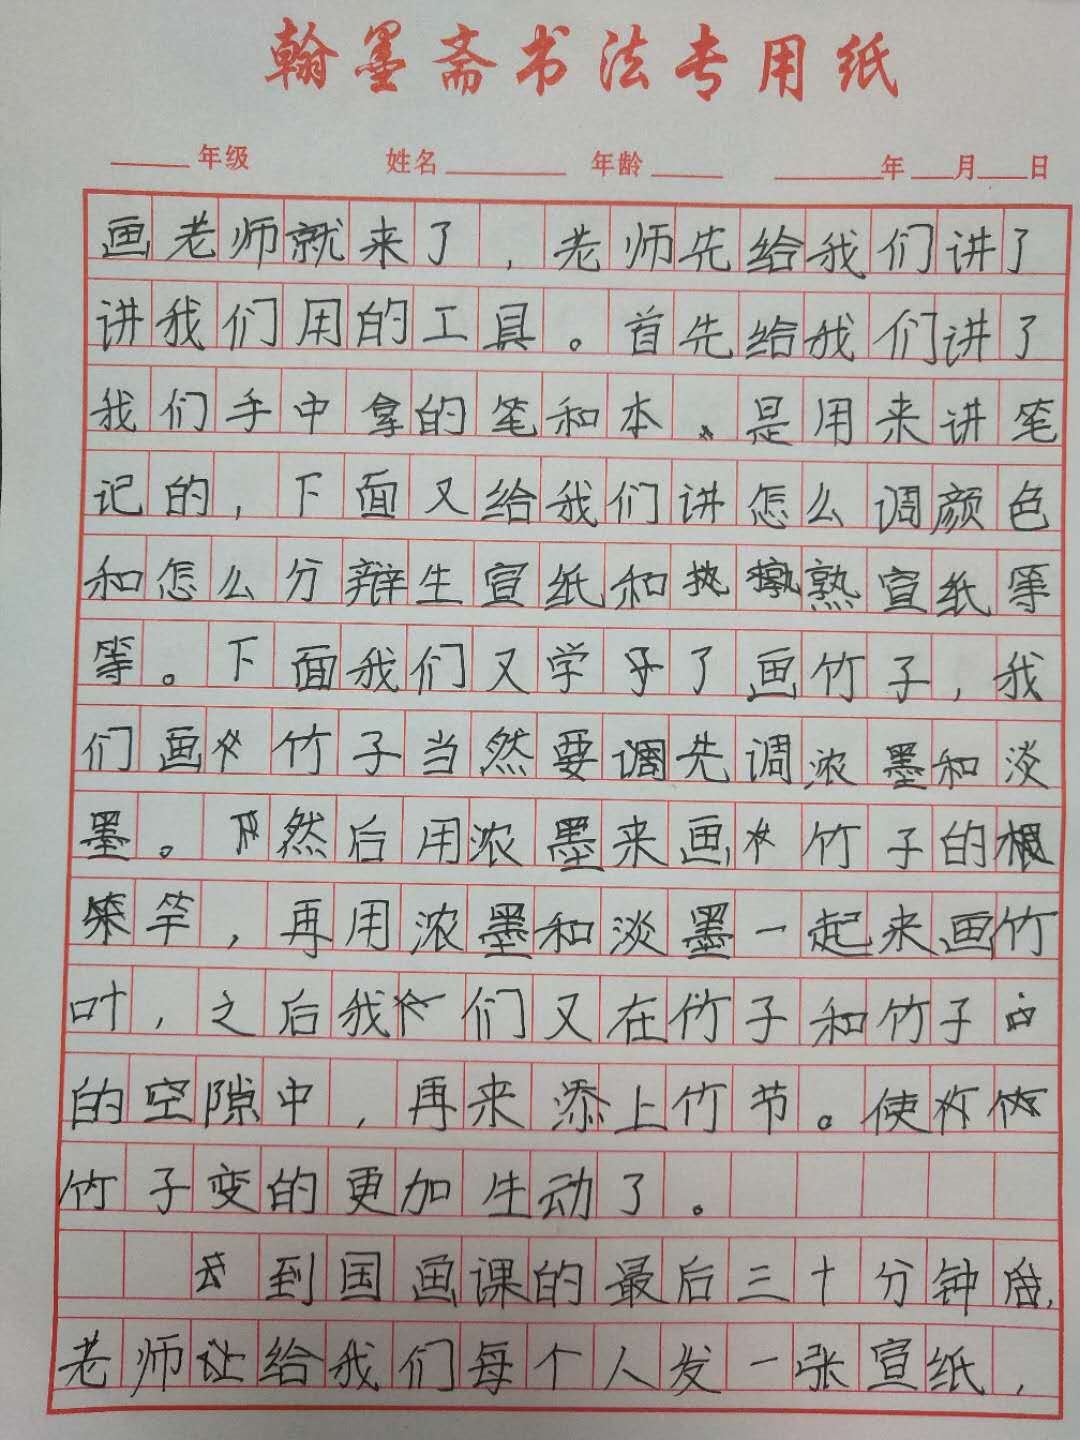 翰墨斋书法专用纸
年级 姓名 年龄 年 月 日
画老师就来了,老师先给我们讲了
讲我们用的工具。首先给我们讲了
我们手中拿的笔和本。是用来讲笔
记的,下面又给我们讲怎么调颜色
和怎么分辩生宣纸和熟宣纸等
等。下面我们又学了画竹子,我
们画竹子当然要先调浓墨和淡
墨。然后用浓墨来画竹子的
竿,再用浓墨和淡墨一起来画竹
叶,之后我们又在竹子和竹子
的空隙中,再来添上竹节。使
竹子变的更加生动了。
到国画课的最后三十分钟后,
老师让给我们每个人发一张宣纸,